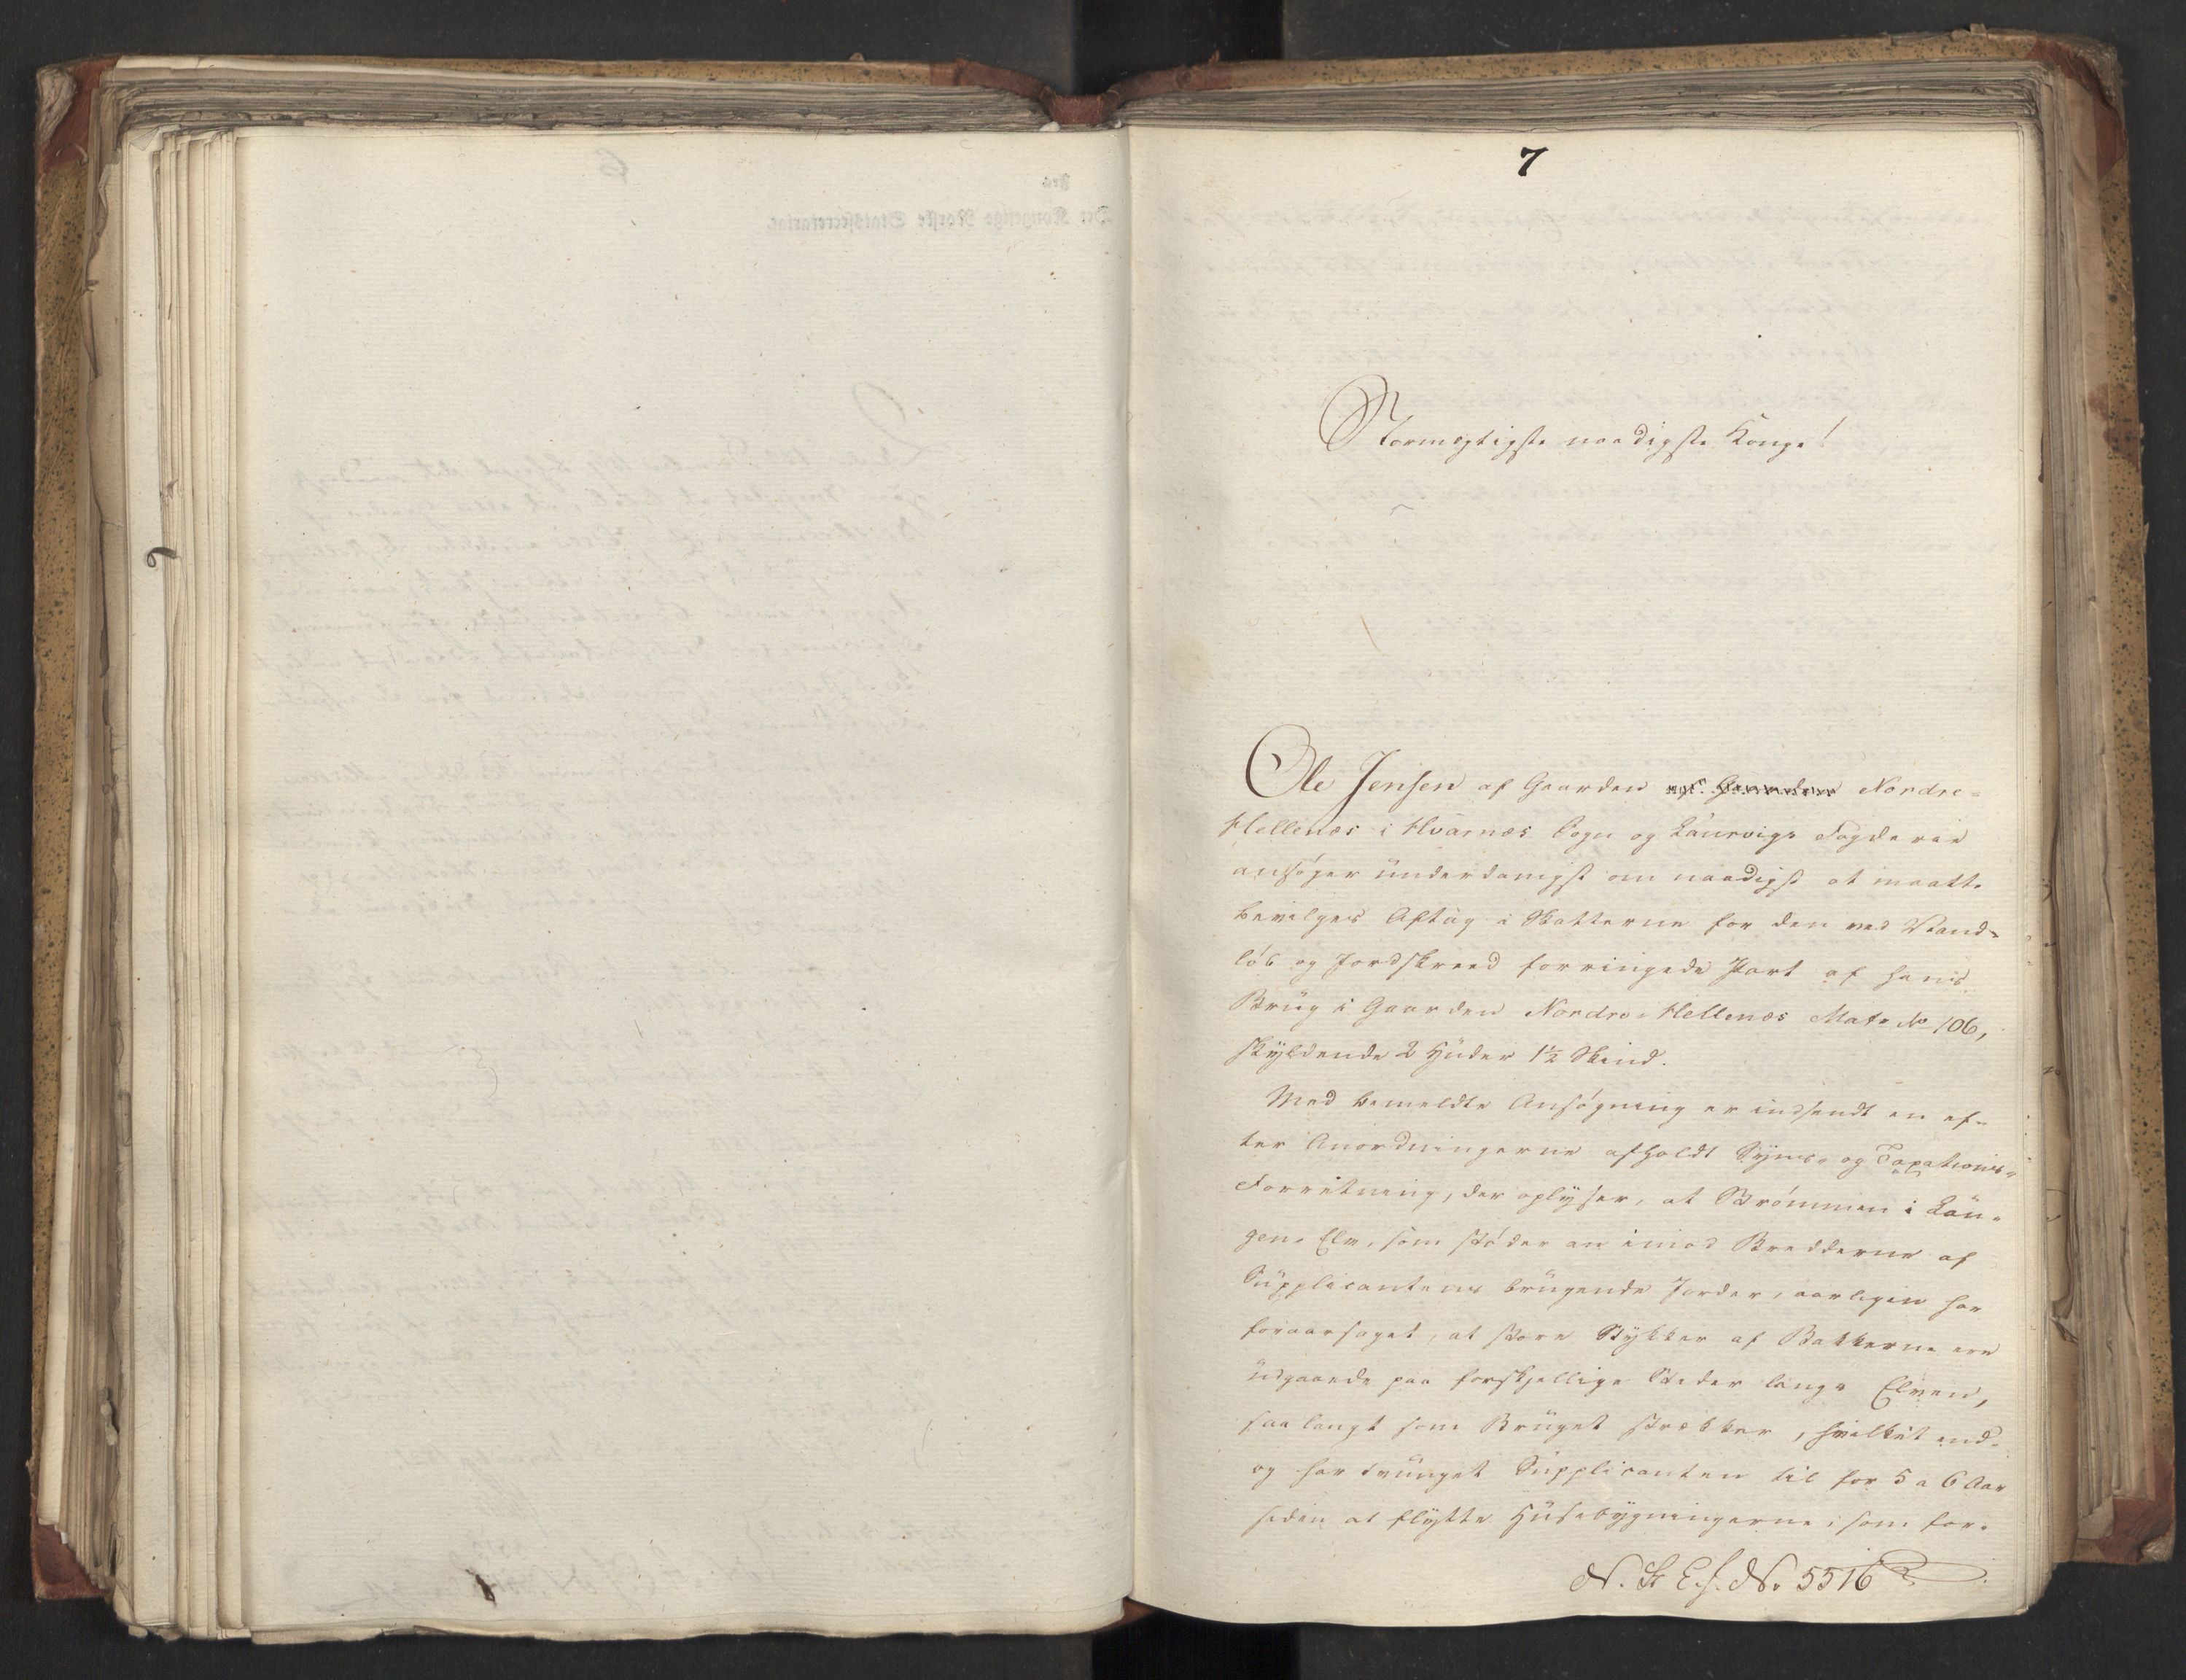 7
Stormægtigste naadigste Konge!
Ole Jensen af Gaarden af Gaarden Nordre-
Hellenæs i Hvarnæs Sogn og Laurvigs Fogderie
ansøger underdanigst om naadigst at maatte
bevilges Aftag i Skatterne for den ved Vand-
løb og Jordskreed forringede Part af hans
Brug i Gaarden Nordre-Hellenæs Mat. No 106,
skyldende 2 Huder 1½ Skind.
Med bemeldte Ansøgning er indsendt en ef-
ter Anordningerne afholdt Syns- og Taxations-
Forretning, der oplyser, at Strømmen i Lau-
gen-Elv, som støder an imod Bredderne af
Supplicantens brugende Jorder, aarligen har
foraarsaget, at store Stykker af Bakkerne ere
udgaaede paa forskjellige Steder langs Elven,
saa langt som Bruget strækker, hvilket end-
og har tvunget Supplicanten til for 5 a 6 Aar
siden at flytte Huusebygningerne, som for-
N. St. E. f. No. 5516